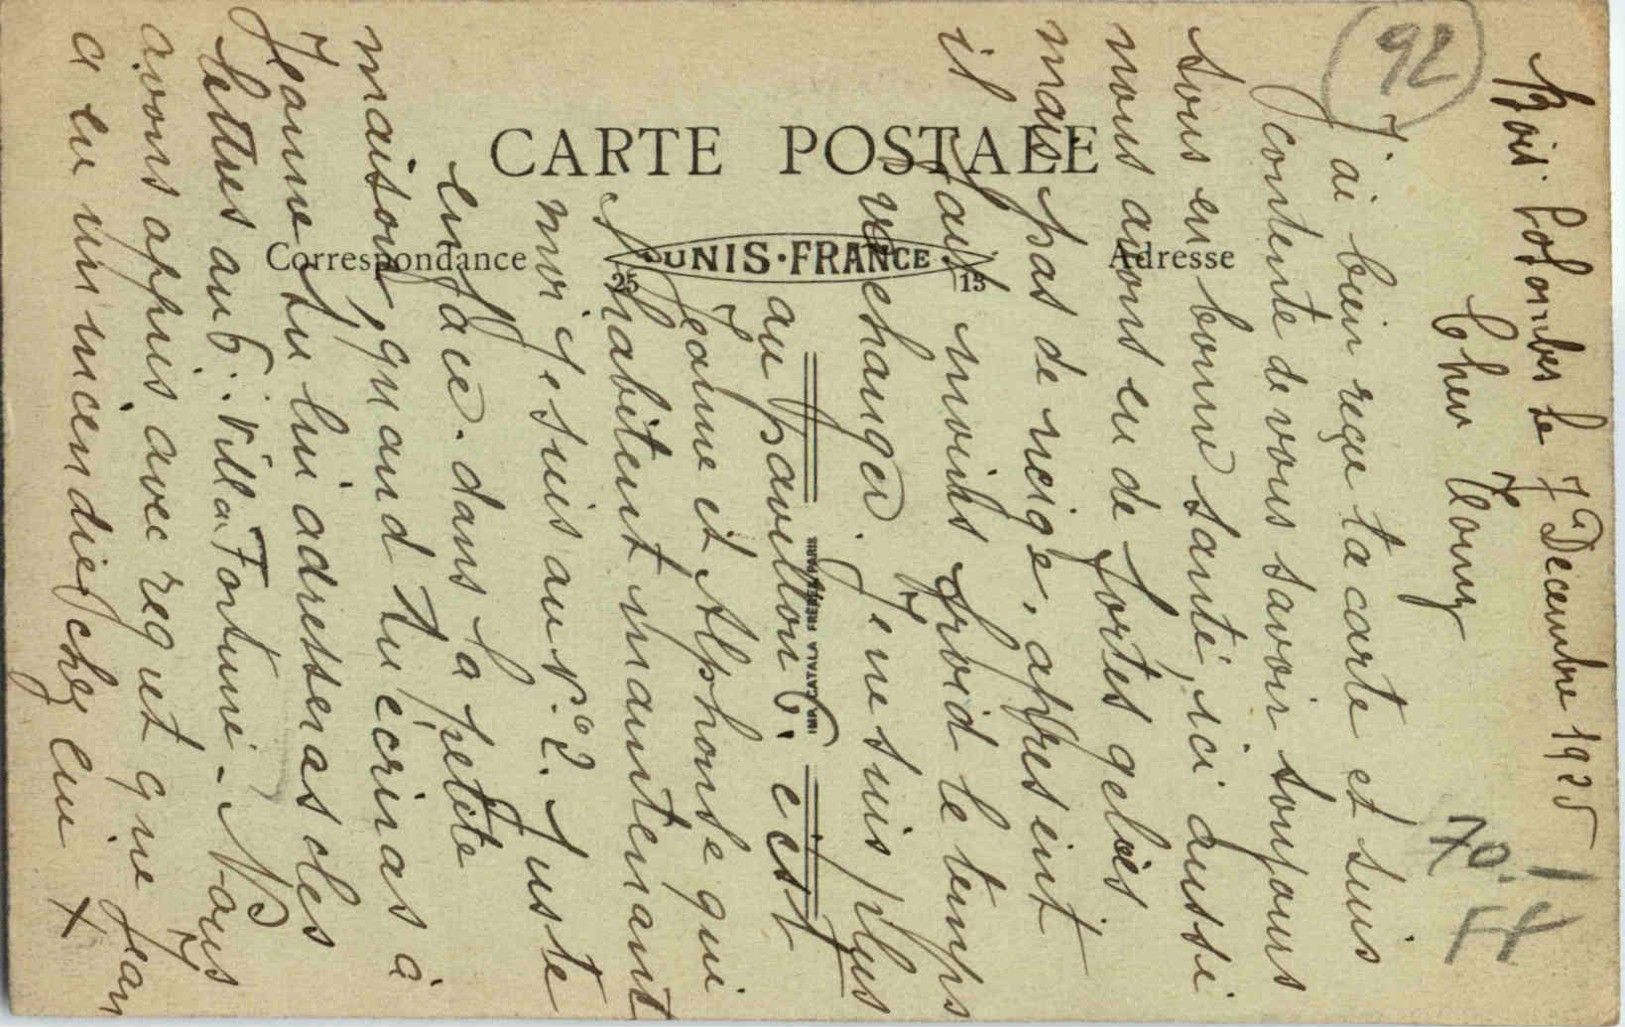 CARTE POSTALE
Correspondance
UNIS-FRANCE
25
13
Adresse
92
70.-
FP
Bois Colombes le 7 Décembre 1925
Cher Tony
J'ai bien reçu ta carte et suis
contente de vous savoir toujours
tous en bonne santé, ici aussi
nous avons eu de fortes gelées
mais pas de neige, apresent
il fait moins froid le temps
va changer. Je ne suis plus
au pavillon 6. c'est
Jeanne et Alphonse qui
l'habitent maintenant
moi je suis au n° 2. Juste
en face. dans la petite
maison, quand tu écriras à
Jeanne tu lui adresseras les
lettres au 6. Villa Fortuné - Nous
avons appris avec regret que Jean
a eu un incendie chez lui x